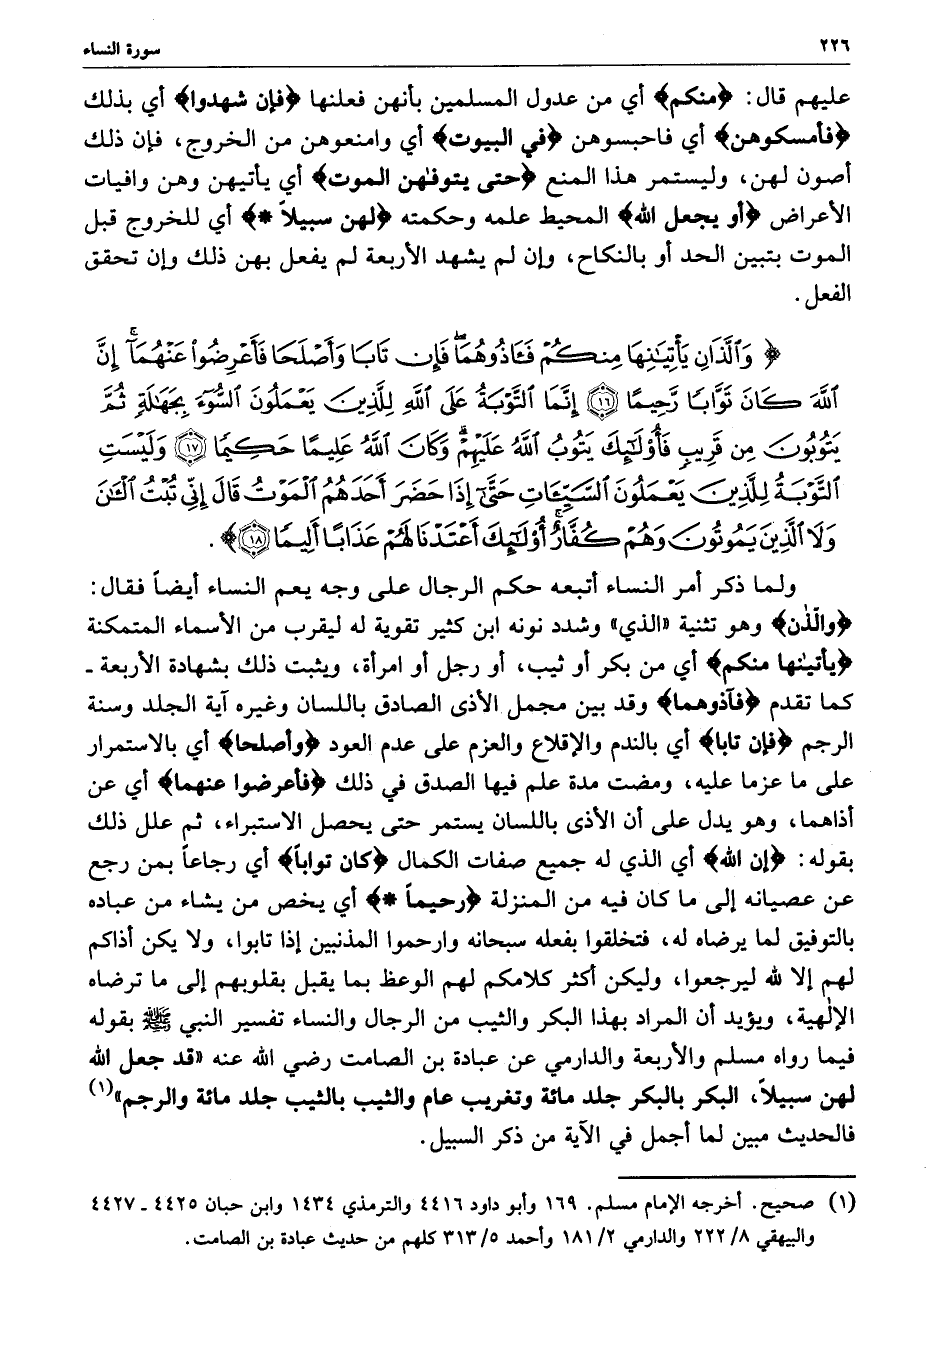 ٢٢٦ سورة النساء
عليهم قال: ﴿منكم﴾ أي من عدول المسلمين بأنهن فعلنها ﴿فإن شهدوا﴾ أي بذلك
﴿فأمسكوهن﴾ أي فاحبسوهن ﴿في البيوت﴾ أي وامنعوهن من الخروج، فإن ذلك
أصون لهن، وليستمر هذا المنع ﴿حتى يتوفٰهن الموت﴾ أي يأتيهن وهن وافيات
الأعراض ﴿أو يجعل الله﴾ المحيط علمه وحكمته ﴿لهن سبيلاً *﴾ أي للخروج قبل
الموت بتبين الحد أو بالنكاح، وإن لم يشهد الأربعة لم يفعل بهن ذلك وإن تحقق
الفعل.
﴿ وَٱلَّذَانِ يَأْتِيَٰنِهَا مِنكُمْ فَـَٔاذُوهُمَا ۖ فَإِن تَابَا وَأَصْلَحَا فَأَعْرِضُوا۟ عَنْهُمَآ ۗ إِنَّ
ٱللَّهَ كَانَ تَوَّابًا رَّحِيمًا ﴿١٦﴾ إِنَّمَا ٱلتَّوْبَةُ عَلَى ٱللَّهِ لِلَّذِينَ يَعْمَلُونَ ٱلسُّوٓءَ بِجَهَٰلَةٍ ثُمَّ
يَتُوبُونَ مِن قَرِيبٍ فَأُو۟لَٰٓئِكَ يَتُوبُ ٱللَّهُ عَلَيْهِمْ ۗ وَكَانَ ٱللَّهُ عَلِيمًا حَكِيمًا ﴿١٧﴾ وَلَيْسَتِ
ٱلتَّوْبَةُ لِلَّذِينَ يَعْمَلُونَ ٱلسَّيِّـَٔاتِ حَتَّىٰٓ إِذَا حَضَرَ أَحَدَهُمُ ٱلْمَوْتُ قَالَ إِنِّى تُبْتُ ٱلْـَٰٔنَ
وَلَا ٱلَّذِينَ يَمُوتُونَ وَهُمْ كُفَّارٌ ۚ أُو۟لَٰٓئِكَ أَعْتَدْنَا لَهُمْ عَذَابًا أَلِيمًا ﴿١٨﴾ ﴾.
ولما ذكر أمر النساء أتبعه حكم الرجال على وجه يعم النساء أيضاً فقال:
﴿والّذٰن﴾ وهو تثنية «الذي» وشدد نونه ابن كثير تقوية له ليقرب من الأسماء المتمكنة
﴿يأتيٰنها منكم﴾ أي من بكر أو ثيب، أو رجل أو امرأة، ويثبت ذلك بشهادة الأربعة ـ
كما تقدم ﴿فآذوهما﴾ وقد بين مجمل الأذى الصادق باللسان وغيره آية الجلد وسنة
الرجم ﴿فإن تابا﴾ أي بالندم والإقلاع والعزم على عدم العود ﴿وأصلحا﴾ أي بالاستمرار
على ما عزما عليه، ومضت مدة علم فيها الصدق في ذلك ﴿فأعرضوا عنهما﴾ أي عن
أذاهما، وهو يدل على أن الأذى باللسان يستمر حتى يحصل الاستبراء، ثم علل ذلك
بقوله: ﴿إن الله﴾ أي الذي له جميع صفات الكمال ﴿كان تواباً﴾ أي رجاعاً بمن رجع
عن عصيانه إلى ما كان فيه من المنزلة ﴿رحيماً *﴾ أي يخص من يشاء من عباده
بالتوفيق لما يرضاه له، فتخلقوا بفعله سبحانه وارحموا المذنبين إذا تابوا، ولا يكن أذاكم
لهم إلا لله ليرجعوا، وليكن أكثر كلامكم لهم الوعظ بما يقبل بقلوبهم إلى ما ترضاه
الإلٰهية، ويؤيد أن المراد بهذا البكر والثيب من الرجال والنساء تفسير النبي ﷺ بقوله
فيما رواه مسلم والأربعة والدارمي عن عبادة بن الصامت رضي الله عنه «قد جعل الله
لهن سبيلاً، البكر بالبكر جلد مائة وتغريب عام والثيب بالثيب جلد مائة والرجم»(١)
فالحديث مبين لما أجمل في الآية من ذكر السبيل.
(١) صحيح. أخرجه الإمام مسلم. ١٦٩ وأبو داود ٤٤١٦ والترمذي ١٤٣٤ وابن حبان ٤٤٢٥ ـ ٤٤٢٧
والبيهقي ٨/ ٢٢٢ والدارمي ٢/ ١٨١ وأحمد ٥/ ٣١٣ كلهم من حديث عبادة بن الصامت.